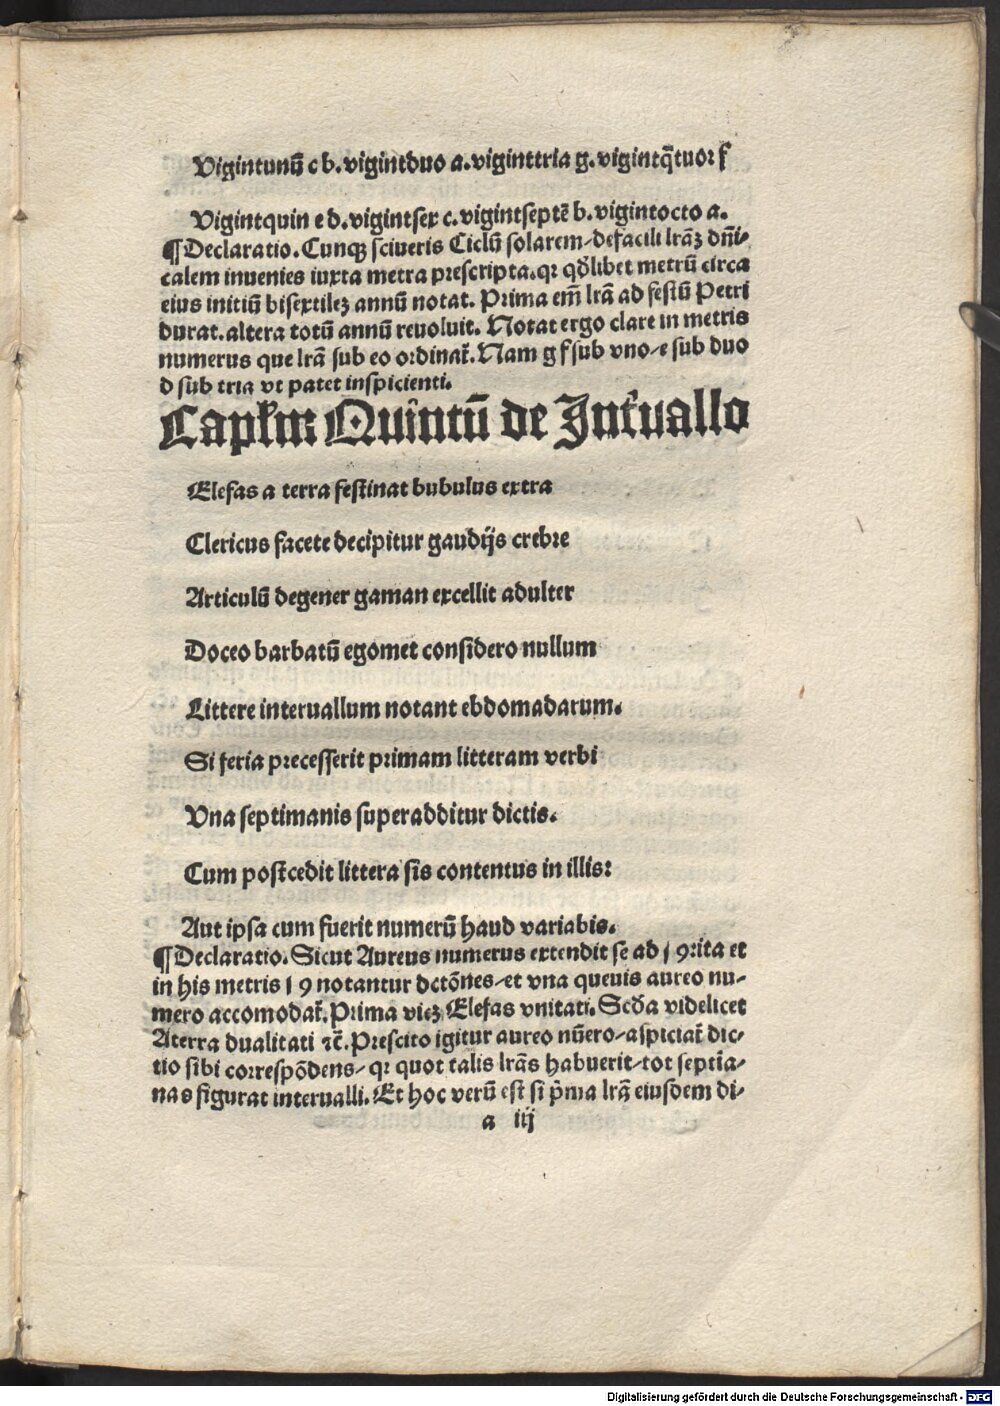 Vigintunū c b. vigintduo a. viginttria g. vigintq̄tuor f
Vigintquin e d. vigintsex c. vigintseptē b. vigintocto a.
¶Declaratio. Cunqꝫ sciueris Ciclū solarem/defacili lrāꝫ dn̄i/
calem inuenies iuxta metra prescripta. qꝛ qd̄libet metrū circa
eius initiū bisextileꝫ annū notat. Prima em̄ lrā ad festū Petri
durat. altera totū annū reuoluit. Notat ergo clare in metris
numerus que lrā sub eo ordinat̄. Nam g f sub vno/e sub duo
d sub tria vt patet inspicienti.
Capl̄m Quintū de Int̄uallo
Elefas a terra festinat bubulus extra
Clericus facete decipitur gaudijs crebre
Articulū degener gaman excellit adulter
Doceo barbatū egomet considero nullum
Littere interuallum notant ebdomadarum.
Si feria precesserit primam litteram verbi
Vna septimanis superadditur dictis.
Cum postcedit littera sis contentus in illis:
Aut ipsa cum fuerit numerū haud variabis.
¶Declaratio. Sicut Aureus numerus extendit se ad 19: ita et
in his metris 19 notantur dctōnes/et vna queuis aureo nu/
mero accomodat̄. Prima vicꝫ Elefas vnitati. Scd̄a videlicet
Aterra dualitati ⁊c̄. Prescito igitur aureo nūero/aspiciat̄ dic/
tio sibi correspōdens/qꝛ quot talis lrās habuerit/tot septīa/
nas figurat interualli. Et hoc verū est si p̄ma lrā eiusdem di/
a iij
Digitalisierung gefördert durch die Deutsche Forschungsgemeinschaft - DFG